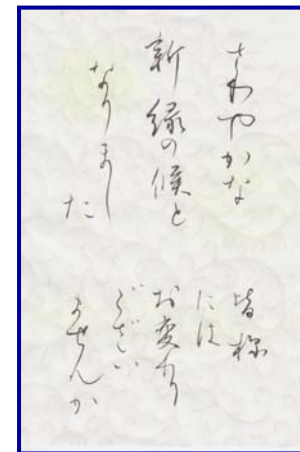 さわやかな
新緑の候と
なりまし
た
皆様
には
お変り
ござい
ませんか